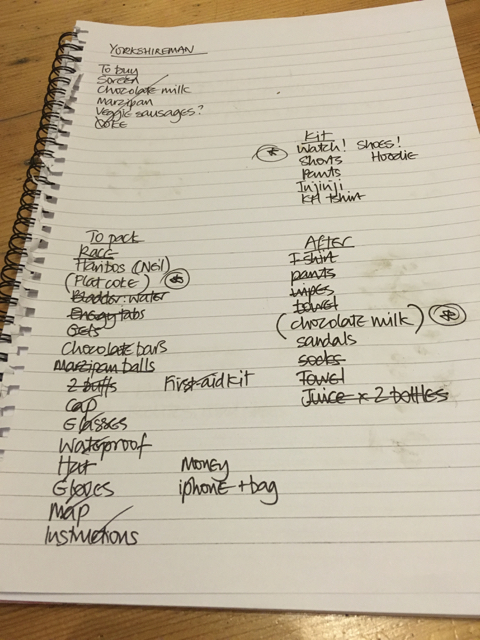 YORKSHIREMAN
To buy
Soreen
Chocolate milk
Marzipan
Veggie sausages?
Coke
Kit
Watch! Shoes!
Shorts Hoodie
Pants
Injinji
KM tshirt
To pack
Race
Haribos (Neil)
(Flat coke)
Bladder: water
Energy tabs
Gels
Chocolate bars
Marzipan balls
2 buffs First-aid kit
Cap
Glasses
Waterproof
Hat Money
Gloves iphone + bag
Map
Instructions
After
T-shirt
pants
wipes
towel
(chocolate milk)
sandals
socks
Towel
Juice x 2 bottles